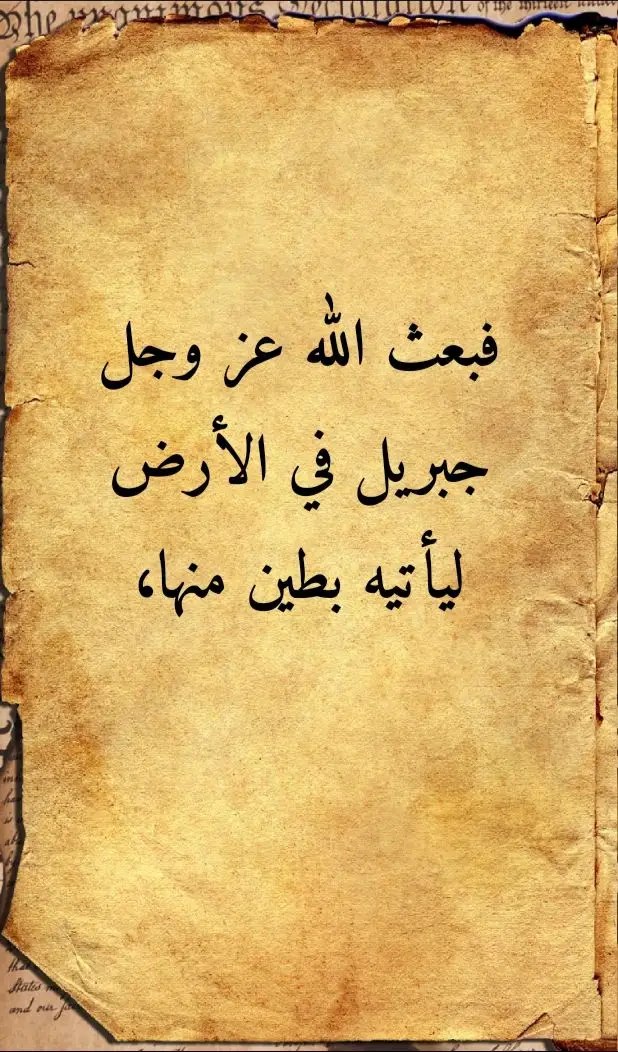 The unanimous Declaration of the thirteen united
فبعث الله عز وجل
جبريل في الأرض
ليأتيه بطين منها،
that
States
and our